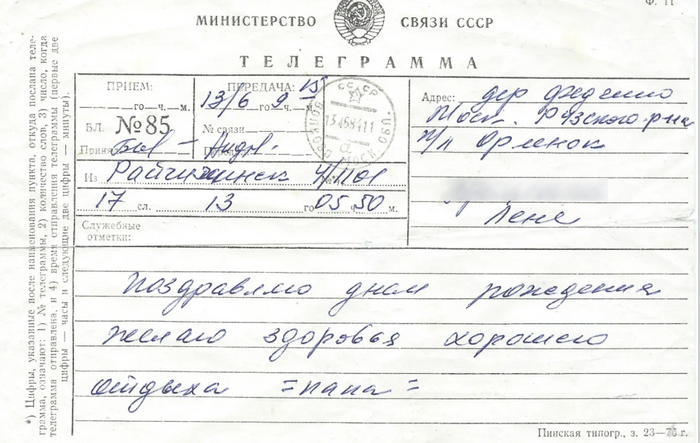 Ф. 11
МИНИСТЕРСТВО СВЯЗИ СССР
ТЕЛЕГРАММА
ПРИЕМ:
го ч. м.
БЛ. №85
Принял
ПЕРЕДАЧА:
13/6 го 9 15
№ связи
Из Райчихинск 4/1101
17 сл. 13 го 05 ч. 50 м.
Служебные
отметки:
Адрес: дер Федчино
Моск. Рузского р-на
п/л Орленок
Лене
поздравляю днем рождения
желаю здоровья хорошего
отдыха =папа=
Пинская типогр., з. 23—76 г.
*) Цифры, указанные после наименования пункта, откуда послана теле-
грамма, означают: 1) № телеграммы, 2) количество слов, 3) число, когда
телеграмма отправлена, и 4) время отправления телеграммы (первые две
цифры — часы и следующие две цифры — минуты).